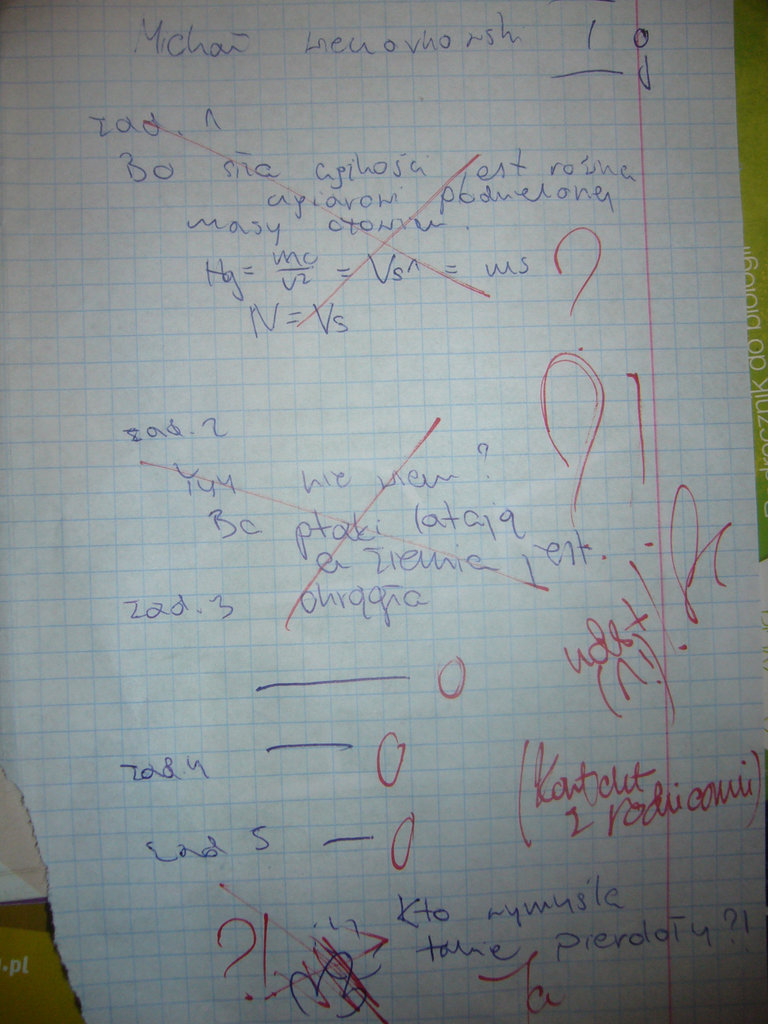 Michał
zad. 1
Bo siła ciężkości jest równa
ciężarowi podzielonej
masy ołowiu.
Hg = mc/v² = Vs^ = ms
?
N = Vs
zad. 2
?!
Yyy nie wiem?
Bo ptaki latają
a ziemia jest
okrągła
zad. 3
ndst
(1!)
— 0
zad. 4 — 0
(Kontakt
z rodzicami)
zad 5 — 0
?!
Kto wymyśla
takie pierdoły?!
Ja
Podręcznik do biologii
.pl